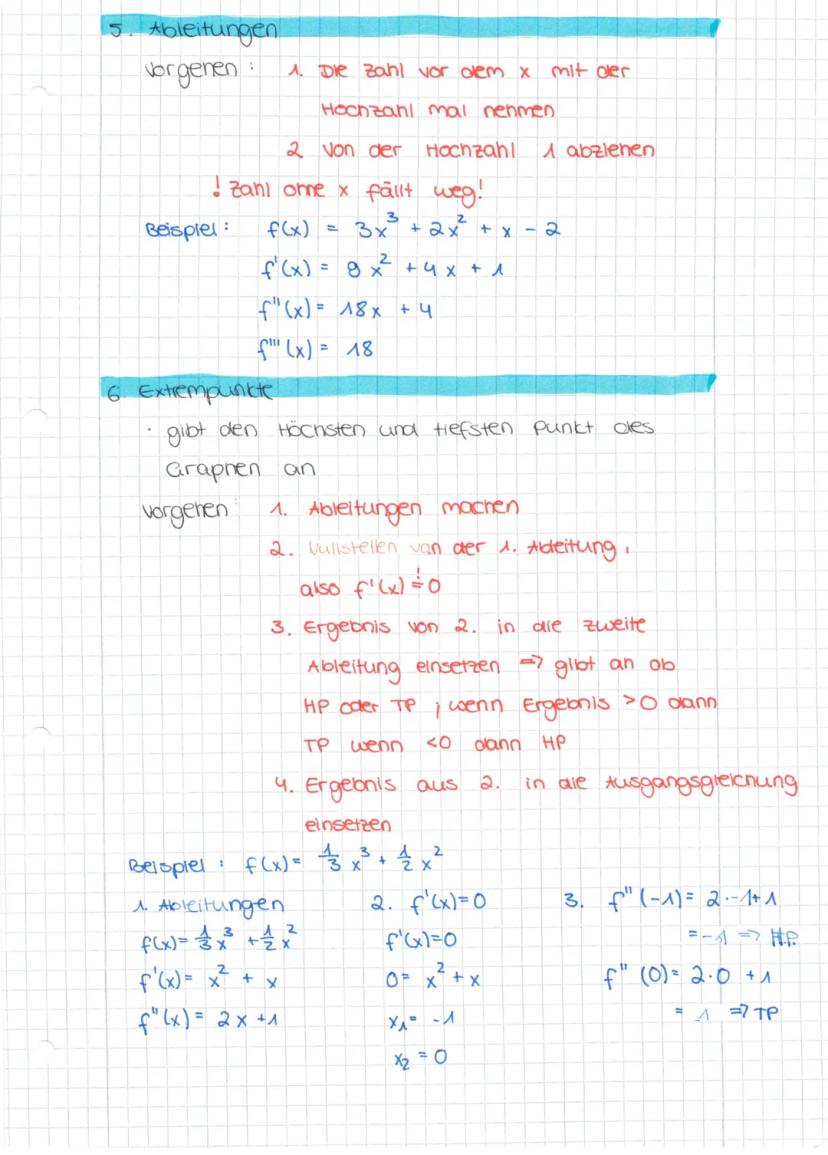 5. Ableitungen
Vorgehen: 1. Die Zahl vor dem x mit der
Hochzahl mal nehmen
2 Von der Hochzahl 1 abziehen
! Zahl ohne x fällt weg!
Beispiel: f(x) = 3x³ + 2x² + x - 2
f'(x) = 9x² + 4x + 1
f''(x) = 18x + 4
f'''(x) = 18
6 Extrempunkte
· gibt den Höchsten und tiefsten Punkt des
Graphen an
Vorgehen: 1. Ableitungen machen
2. Nullstellen von der 1. Ableitung,
also f'(x) \overset{!}{=} 0
3. Ergebnis von 2. in die zweite
Ableitung einsetzen => gibt an ob
HP oder TP ; wenn Ergebnis >0 dann
TP wenn <0 dann HP
4. Ergebnis aus 2. in die Ausgangsgleichung
einsetzen
Beispiel: f(x) = 1/3 x³ + 1/2 x²
1. Ableitungen
f(x) = 1/3 x³ + 1/2 x²
f'(x) = x² + x
f''(x) = 2x + 1
2. f'(x)=0
f'(x)=0
0 = x² + x
x₁ = -1
x₂ = 0
3. f''(-1) = 2·-1+1
= -1 => H.P.
f''(0) = 2·0 + 1
= 1 => TP